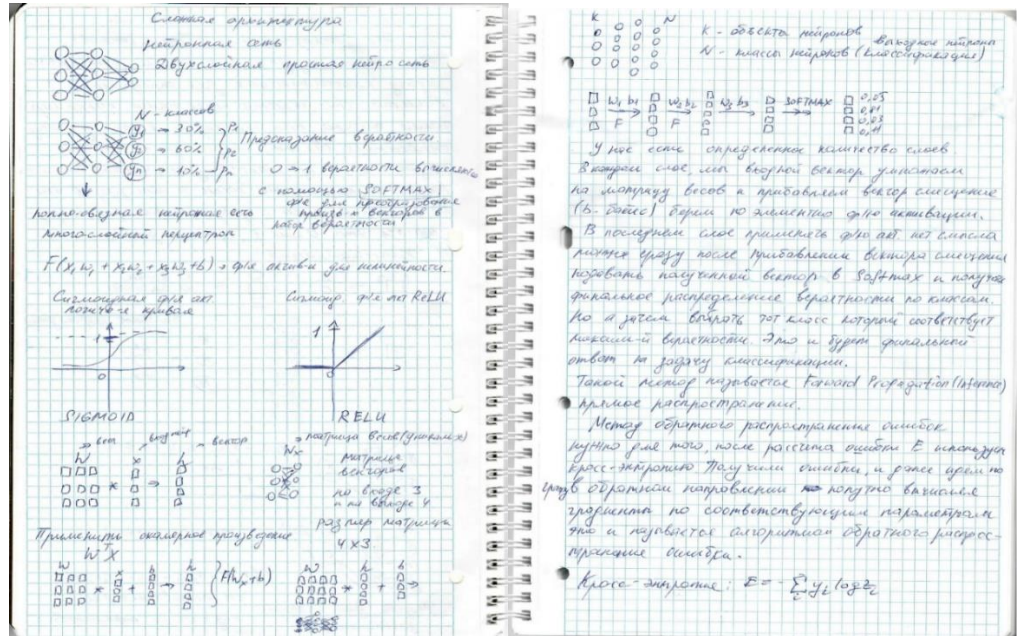 Сложная архитектура
Нейронная сеть
Двухслойная простая нейро сеть
N - классов
y₁ → 30% P₁
y₂ → 60% P₂
yₙ → 10% Pₙ
Предсказание вероятности
0 → 1 вероятности вычисляем
с помощью SOFTMAX
ф-я для преобразования
произв-х векторов в
набор вероятности
полно-связная нейронная сеть
много-слойный перцептрон
F(x₁w₁ + x₂w₂ + x₃w₃ + b) → ф-я актив-и для нелинейности.
Сигмоидная ф-я акт
логич-я кривая
1
0
SIGMOID
Сигмоид. ф-я акт ReLU
1
0
RELU
вес входной вектор
W x h
* →
→ матрица весов (уникальх)
Wx
матрицы
векторов
на входе 3
и на выходе 4
размер матрицы
4 x 3.
Применить скалярное произведение
WᵀX
W x b h
* + → } F(Wx+b)
W h b
* + →
K N
K - объекты нейронов
Выходные нейроны
N - классы нейронов (классификация)
W₁ b₁ W₂ b₂ W₃ b₃ SOFTMAX 0,05
F F 0,01
0,03
0,11
У нас есть определенное количество слоев
В каждом слое, мы входной вектор умножаем
на матрицу весов и прибавляем вектор смещение
(b - байес) берем по элементно ф-ю активации.
В последнем слое применять ф-ю акт. нет смысла
можно сразу после прибавления вектора смещения
подавать полученный вектор в Softmax и получаем
финальное распределение вероятности по классам.
Но а зачем выбрать тот класс который соответствует
максим-й вероятности. Это и будет финальной
ответ на задачу классификации.
Такой метод называется Forward Propagation (Inference)
прямое распространение.
Метод обратного распространения ошибок
нужно для того, после рассчёта ошибки E используем
кросс-энтропию Получили ошибки, и далее идем по
графу в обратном направлении попутно вычисляя
градиенты по соответствующим параметрам
это и называется алгоритмом обратного распрос-
транения ошибки.
Кросс-энтропия: E = - Σ yᵢ log zᵢ
i